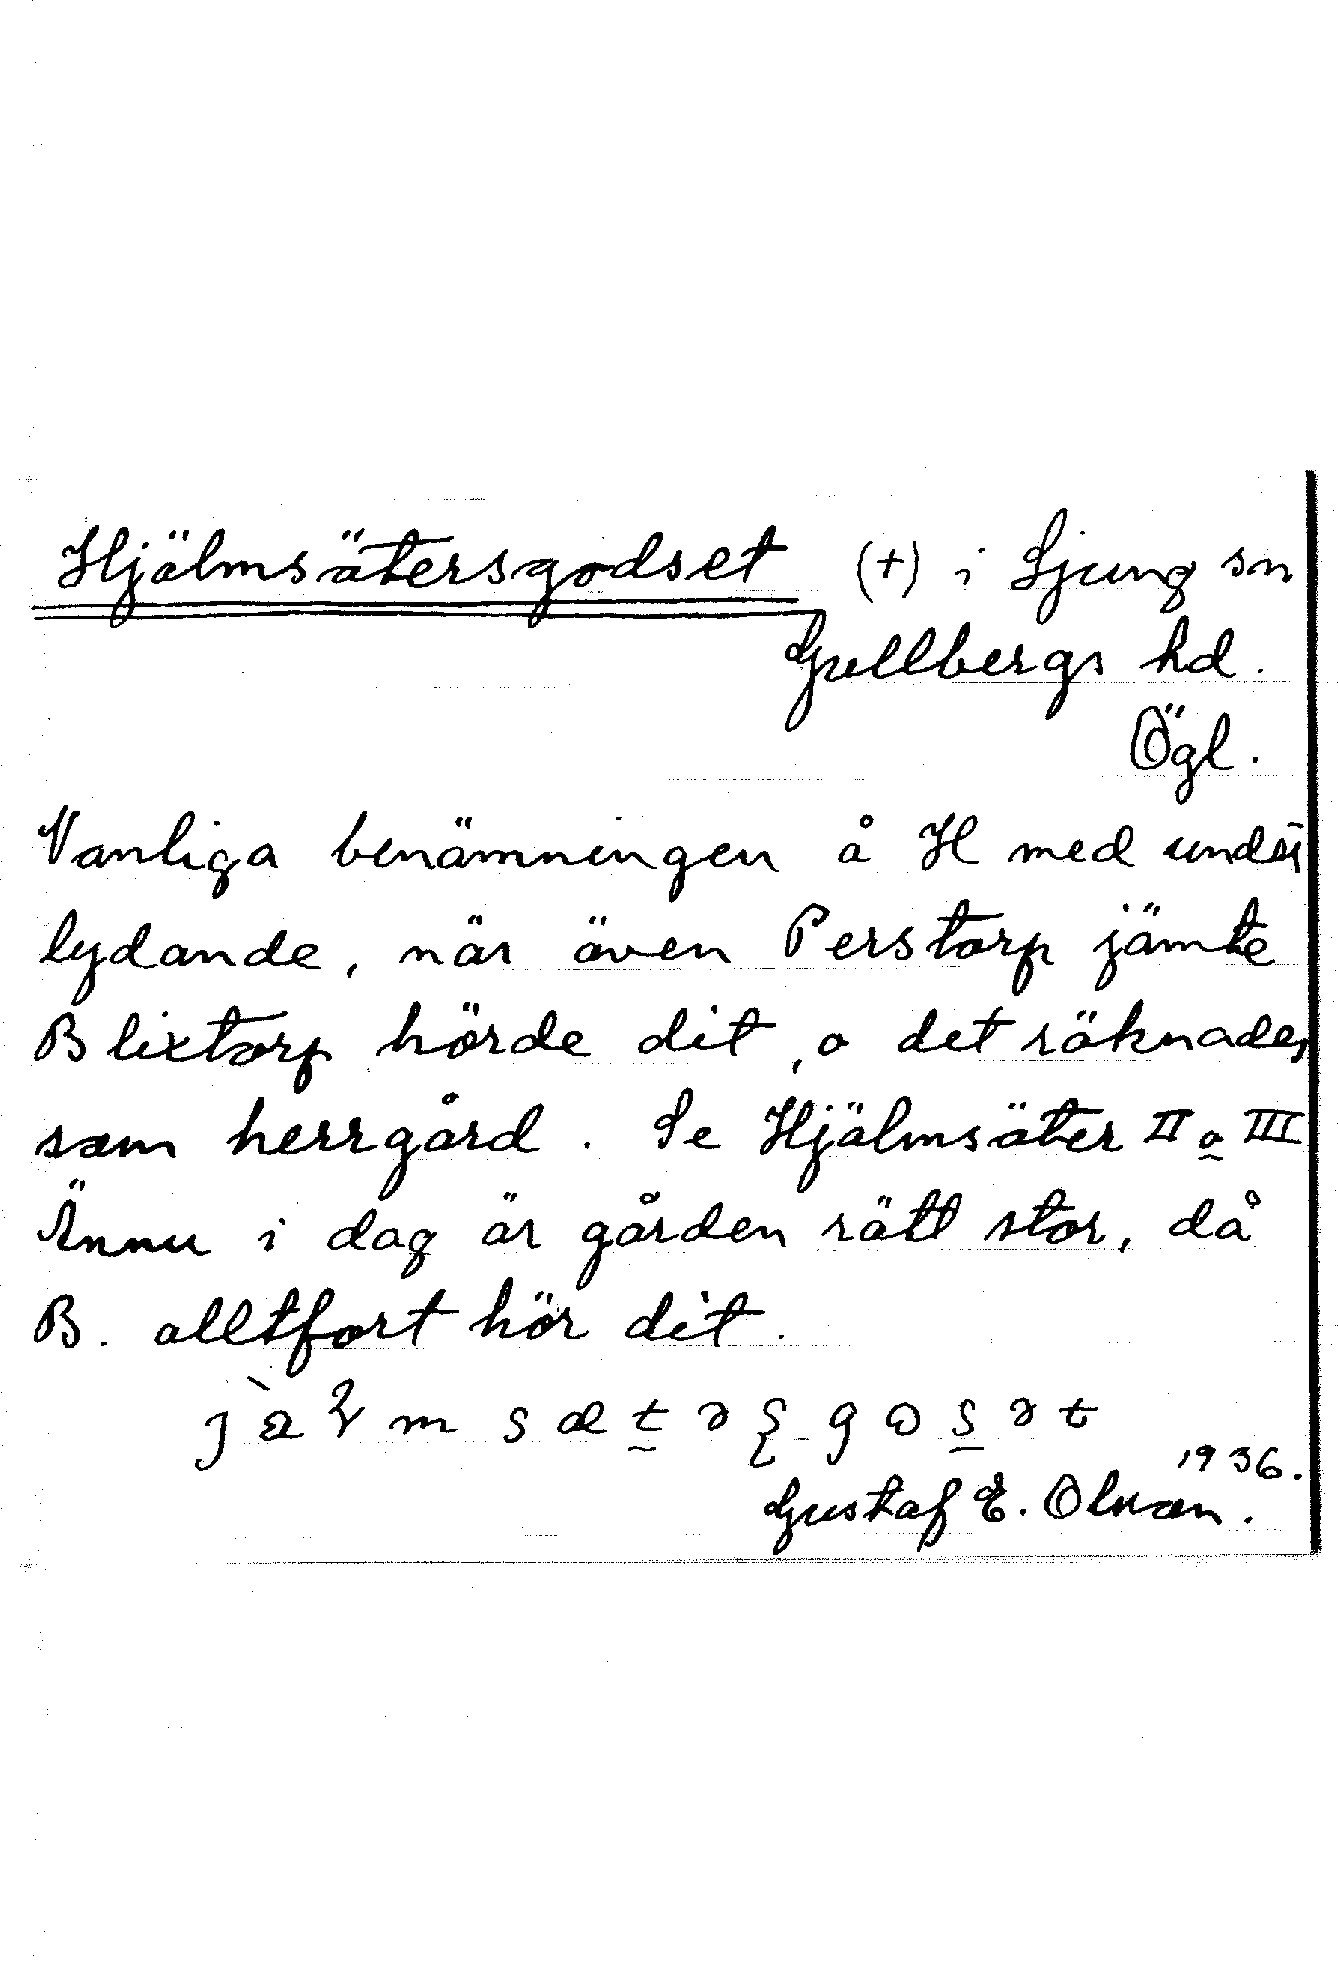 Hjälmsätersgodset (+) i Ljung sn
Gullbergs hd.
Ögl.
Vanliga benämningen å H med under
lydande, när även Perstorp jämte
Blixtorp hörde dit, o det räknades
som herrgård. Se Hjälmsäter II o III
Ännu i dag är gården rätt stor, då
B. alltfort hör dit.
1936.
Gustaf E. Olsson.